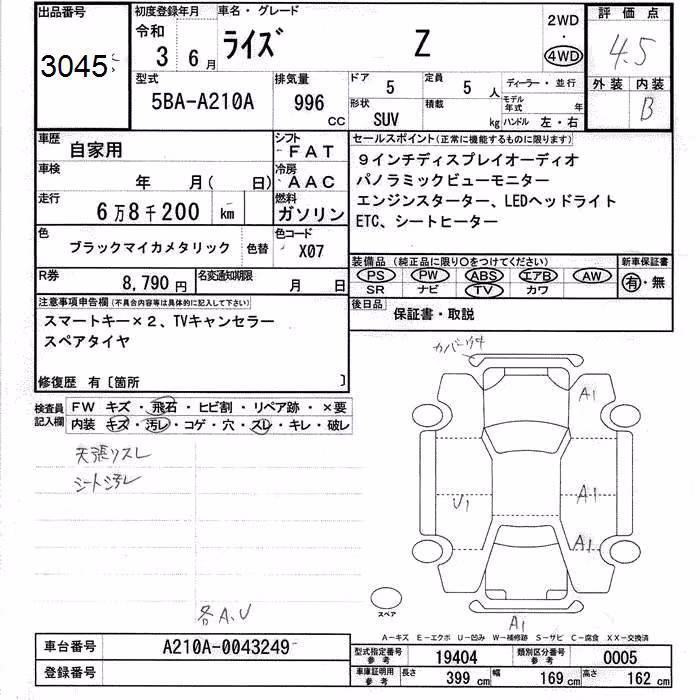 出品番号 初度登録年月 車名・グレード 2WD 評価点
令和 ・
3045 3 6月 ライズ Z 4WD 4.5
型式 排気量 ドア 定員 ディーラー・並行 外装 内装
5BA-A210A 996 cc 5 5 人 モデル年式 年 B
形状 SUV 積載 kg ハンドル 左・右
車歴 自家用 シフト FAT セールスポイント(正常に機能するものに限ります)
車検 年 月( 日) 冷房 AAC 9インチディスプレイオーディオ
パノラミックビューモニター
走行 6万8千200 km 燃料 ガソリン エンジンスターター、LEDヘッドライト
ETC、シートヒーター
色 ブラックマイカメタリック 色替 色コード X07
装備品(純正品に限り○をつけてください) 新車保証書
R券 8,790円 名変通知期限 月 日 PS PW ABS エアB AW 有・無
SR ナビ TV カワ
注意事項申告欄(不具合内容等は具体的に記入して下さい) 後日品 保証書・取説
スマートキー×2、TVキャンセラー
スペアタイヤ
修復歴 有〔箇所 〕
検査員記入欄 FW キズ・飛石・ヒビ割・リペア跡・×要
内装 キズ・汚レ・コゲ・穴・スレ・キレ・破レ
天張リスレ
シート汚レ
各A、U
A1
U1 A1
A1
スペア
A1
A-キズ E-エクボ U-凹み W-補修跡 S-サビ C-腐食 XX-交換済
車台番号 A210A-0043249 型式指定番号 参考 19404 類別区分番号 参考 0005
登録番号 車庫証明用 参考 長さ 399 cm 幅 169 cm 高さ 162 cm